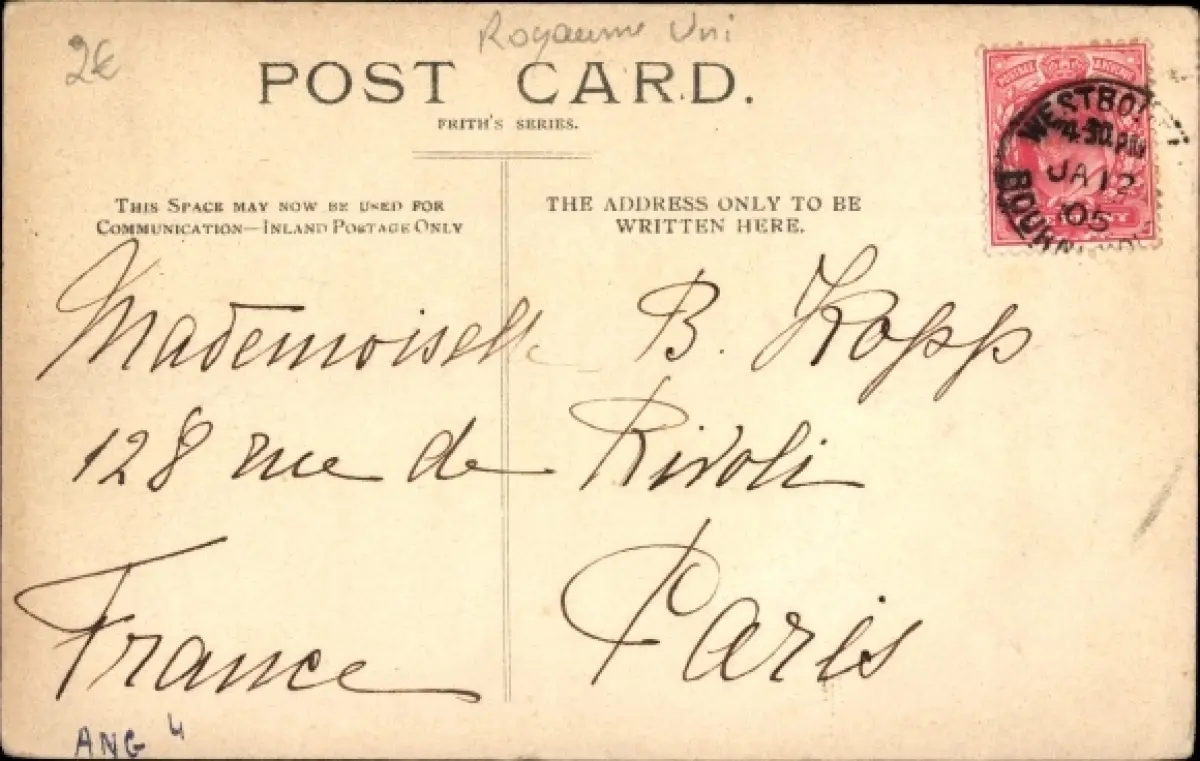 Royaume Uni
2€
POST CARD.
FRITH'S SERIES.
THIS SPACE MAY NOW BE USED FOR
COMMUNICATION—INLAND POSTAGE ONLY
THE ADDRESS ONLY TO BE
WRITTEN HERE.
POSTAGE
4.30 PM
JA 12
05
Mademoiselle B. Kopp
128 rue de Rivoli
France Paris
ANG 4